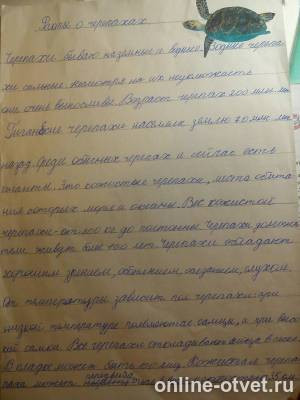 Факты о черепахах
Черепахи бывают наземные и водные. Водные черепа-
хи сильные. Несмотря на их неуклюжесть
они очень выносливые. Возраст черепах 200 млн лет.
Гигантские черепахи населяли землю 20 млн лет
назад. Среди обычных черепах и сейчас есть
гиганты. Это кожистые черепахи, места обита-
ния которых моря и океаны. Вес кожистой
черепахи от 100 кг до постоянно. Черепахи
тели живут более 100 лет. Черепахи обладают
хорошим зрением, обонянием, осязанием, слухом.
От температуры зависит пол черепахи: при
низкой температуре появляются самцы, а при высо-
кой самки. Все черепахи откладывают яйца в песок.
В кладке может быть яиц. Кожистая черепа-
ха может
online-otvet.ru